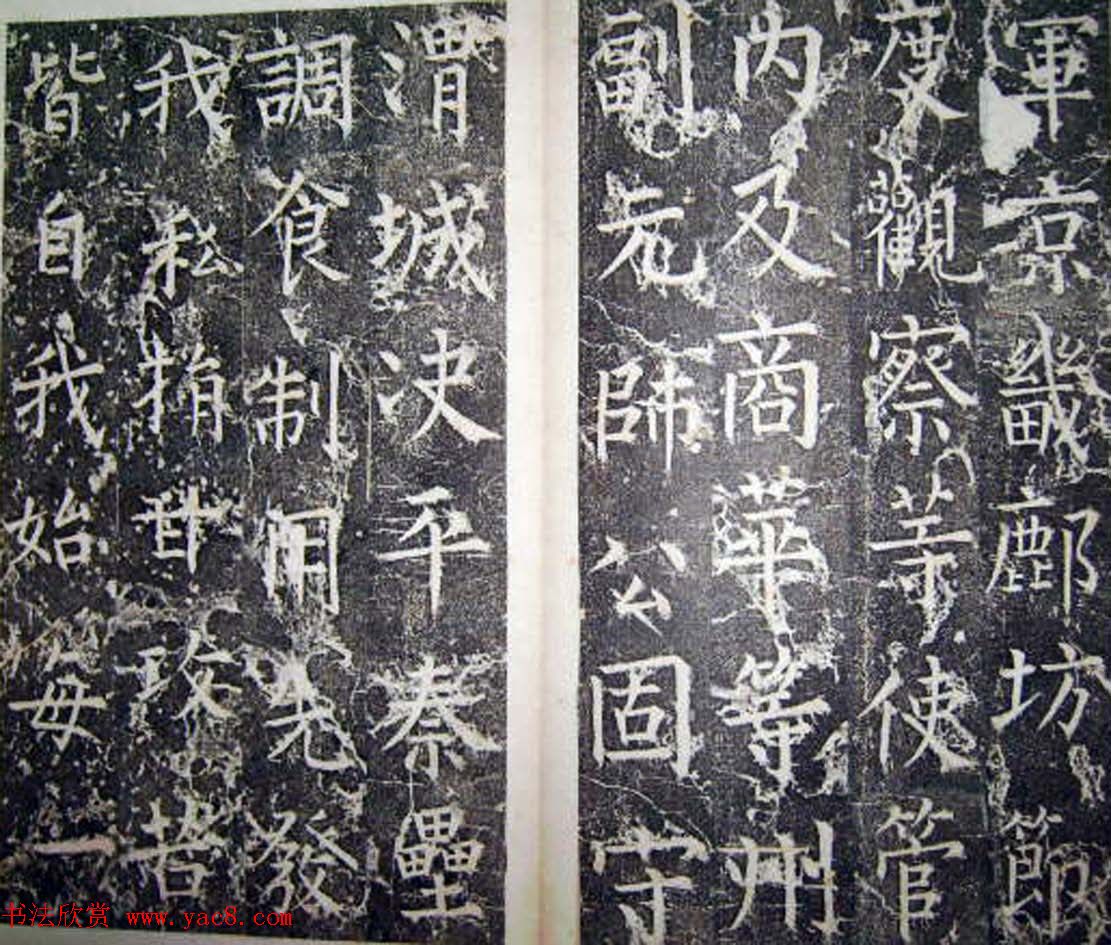 軍京畿鄜坊節
度觀察等使管
內及商華等州
副元師公固守
渭城決平秦壘
調食制用先發
我私捐甘攻苦
皆自我始每一
书法欣赏 www.yac8.com